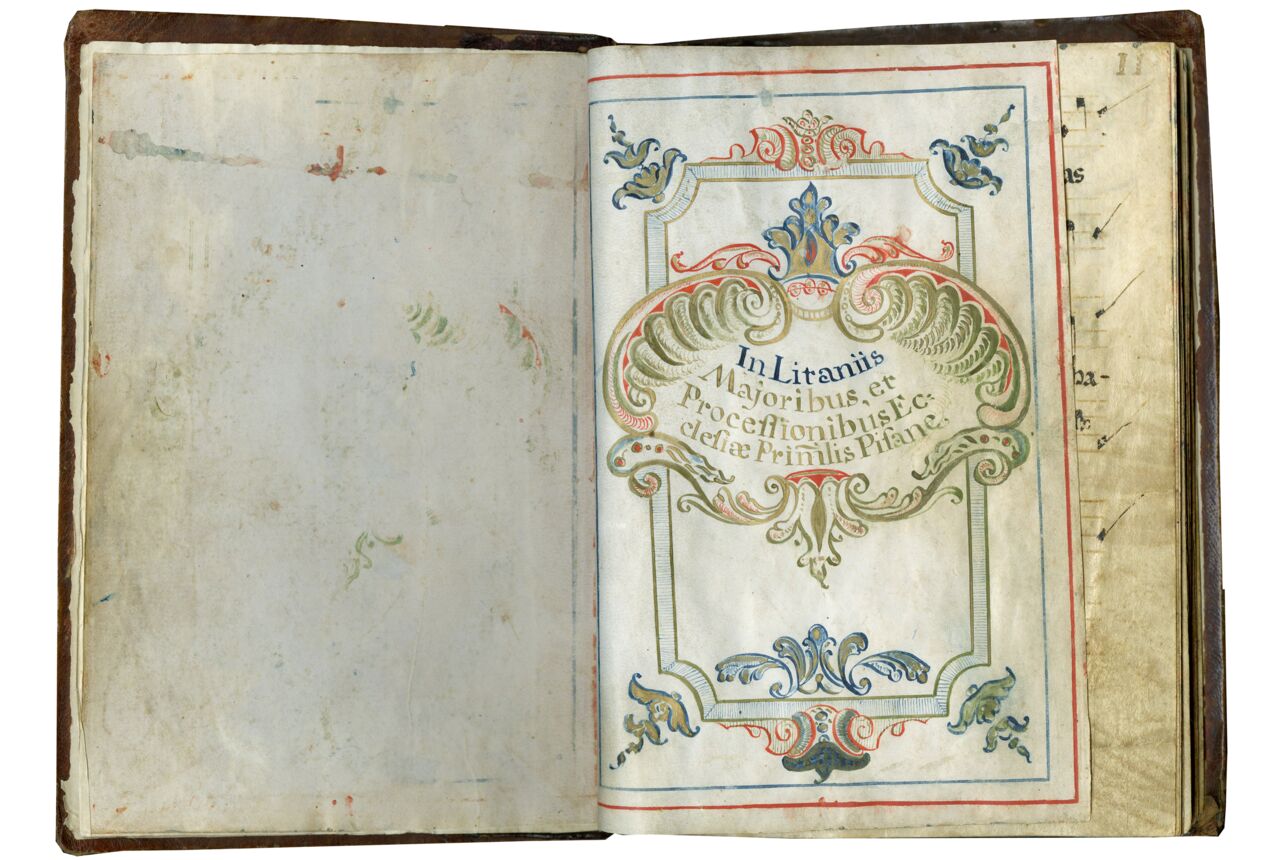 In Litaniis
Majoribus, et
Proceſſionibus Ec-
cleſiæ Prim̃lis Piſanę.
11
as